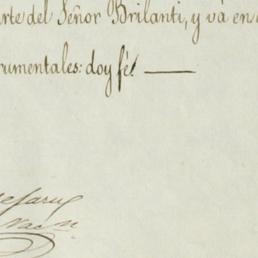 arte del Señor Brilanti, y vá en
rumentales: doy fé!